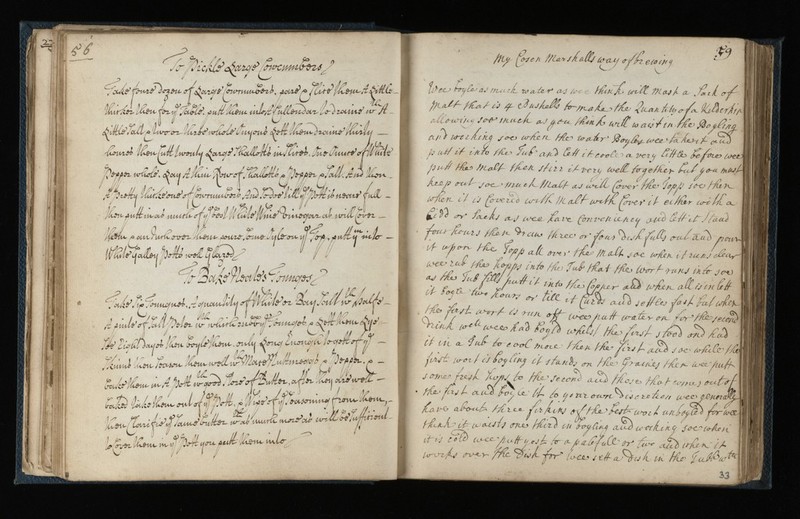 56
To Pickle Large Cowcumbers
Take foure dozen of Large Cowcumbers, pare & slice them A Little
thicker then for ye Table, putt them into A Cullendar to draine wth A
Little Salt & two or three whole Onyons Lett them draine thirty
houres then Cutt twenty Large Shallotts in slices, one Ounce of White
Pepper whole, Lay A thin Row of Shallotts & Pepper & Salt, And then
A Pretty thick one of Cowcumbers And so doe till ye Pott is neare full
then putt in as much of ye best White Wine Vinegar as will Cover
them & and with over them some, putt ym into
White Galley Potts well Glazed
To Bake Neates Tongues
Take Six Tongues, A quantity of White or Bay Salt wth halfe
A pinte of Salt Peter wth which rub ye Tongues & Lett them Lye
Eight Dayes then boyle them only Long Enough to gett of ye
Skinns then season them well wth Mace Nuttmeggs & Pepper, &
bake them in A Pott wth good store of Butter, after they are well
baked take them out of ye Pott, & Wipe of ye seasoning from them,
then Clarifie ye same butter wth as much more as will be sufficient
to Cover them in ye Pott you putt them into
59
My Cosen Marshalls way of brewing
Wee boyle as much water as wee think will mash a Sack of
Malt that is 4 Bushells to make the Quantity of a Kilderkin
allowing soe much as you think will waist in the Boyling
and working soe when the water Boyles wee take it and
putt it into the Tub and lett it coole a very little before wee
putt the Malt then stirr it very well together but you must
keep out soe much Malt as will Cover the Topp soe then
when it is Covered with Malt wee Cover it either with a
Bedd or Sacks as wee have Conveniency and lett it stand
four hours then draw three or four dish fulls out and pour
it upon the Topp all over the Malt soe when it runs clear
wee rub the hopps into the Tub that the wort runs into soe
as the Tub fills putt it into the Copper and when all is in lett
it boyle two hours or till it Curds and settles fast but when
the first wort is run off wee putt water on for the second
Drink wch wee had boyld whilst the first stood and had
it in a Tub to cool more then the first and soe while the
first wort is boyling it stands on the Graines then wee putt
some fresh hops to the second and those that comes out of
the first and boyle it to your own discretion wee generally
have aboute three firkins of the best wort unboyld for wee
think it waists one third in boyling and working soe when
it is cold wee putt yest to a palefull or two and when it
works over the Dish for wee sett a Dish in the Tubb wth
33